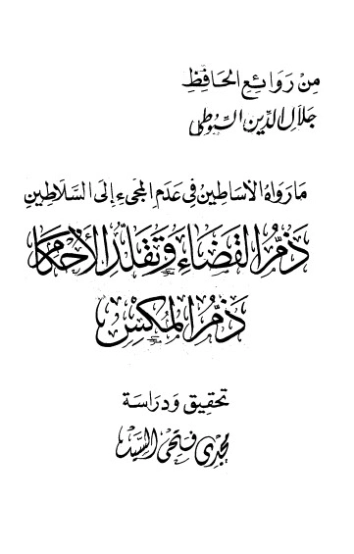 مِنْ رَوَائِعِ الحَافِظِ
جَلَالِ الدِّينِ السُّيُوطِي
مَا رَوَاهُ الأَسَاطِين فِي عَدَمِ المَجِيءِ إِلَى السَّلَاطِينِ
ذَمُّ القَضَاءِ وَتَقَلُّدِ الأَحْكَامِ
ذَمُّ المَكْسِ
تحقيق وَدرَاسَة
مجدي فتحي السيد